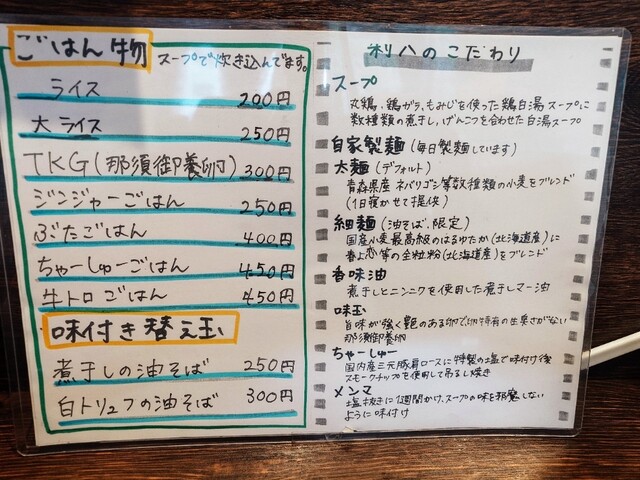 ごはん物
スープで炊き込んでます。
ライス 200円
大ライス 250円
TKG(那須御養卵) 300円
ジンジャーごはん 250円
ぶたごはん 400円
ちゃーしゅーごはん 450円
牛トロごはん 450円
味付き替え玉
煮干しの油そば 250円
白トリュフの油そば 300円
利八のこだわり
スープ
丸鶏、鶏ガラ、もみじを使った鶏白湯スープに
数種類の煮干し、げんこつを合わせた白湯スープ
自家製麺(毎日製麺しています)
太麺(デフォルト)
青森県産ネバリゴシ等数種類の小麦をブレンド
(1日寝かせて提供)
細麺(油そば、限定)
国産小麦最高級のはるゆたか(北海道産)に
春よ恋等の全粒粉(北海道産)をブレンド
香味油
煮干しとニンニクを使用した煮干しマー油
味玉
旨味が強く艶のある卵で卵特有の生臭さがない
那須御養卵
ちゃーしゅー
国内産三元豚肩ロースに特製の塩で味付け後
スモークチップを使用して吊るし焼き
メンマ
塩抜きに1週間かけ、スープの味を邪魔しない
ように味付け